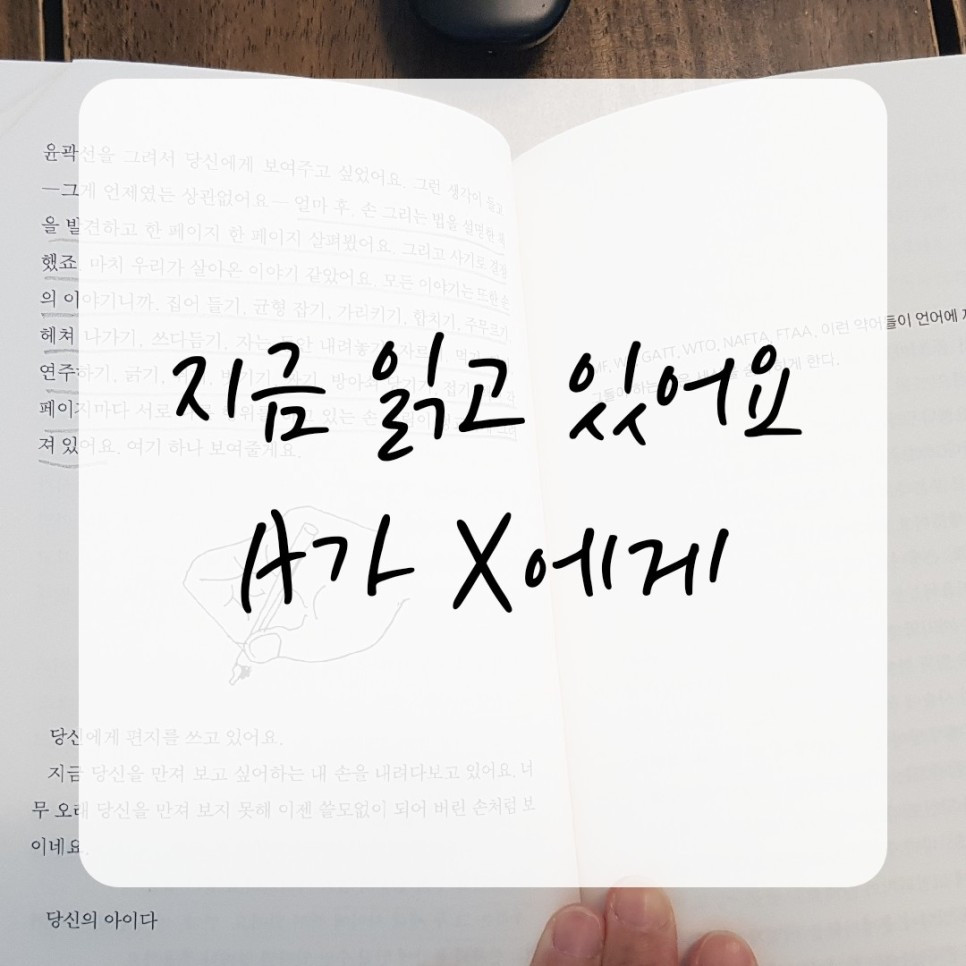 윤곽선을 그려서 당신에게 보여주고 싶었어요. 그런 생각이 들고
—그게 언제였든 상관없어요— 얼마 후, 손 그리는 법을 설명한 책
을 발견하고 한 페이지 한 페이지 살펴봤어요. 그리고 사기로 결정
했죠. 마치 우리가 살아온 이야기 같았어요. 모든 이야기는 또한 손
의 이야기니까. 집어 들기, 균형 잡기, 가리키기, 합치기, 주무르기
헤쳐 나가기, 쓰다듬기, 자는 내려놓기
연주하기, 긁기,
페이지마다 서로 있는 손
져 있어요. 여기 하나 보여줄게요.
GATT, WTO, NAFTA, FTAA, 이런 약어들이 언어에
한다.
지금 읽고 있어요
A가 X에게
당신에게 편지를 쓰고 있어요.
지금 당신을 만져 보고 싶어하는 내 손을 내려다보고 있어요. 너
무 오래 당신을 만져 보지 못해 이젠 쓸모없이 되어 버린 손처럼 보
이네요.
당신의 아이다